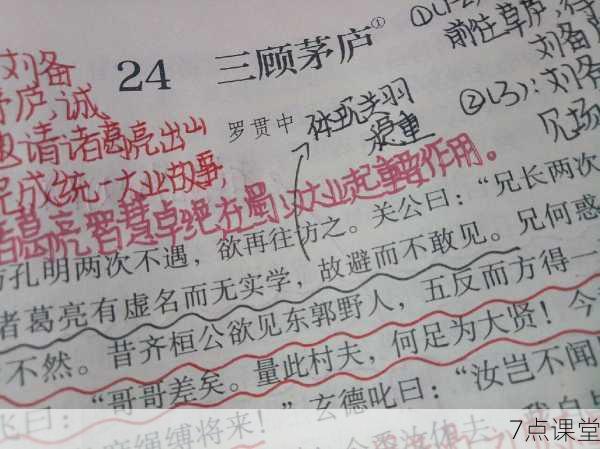 24 三顾茅庐①
罗贯中
刘备
茅庐,诚
邀请诸葛亮出山
完成统一大业故事,
诸葛亮智慧卓绝在蜀以大业起重要作用。
体现关羽
稳重
前往草庐,待
刘备
②(3):刘备
见场
访孔明两次不遇,欲再往访之。关公曰:“兄长两次
诸葛亮有虚名而无实学,故避而不敢见。兄何惑
不然。昔齐桓公欲见东郭野人,五反而方得一
飞曰:“哥哥差矣。量此村夫,何足为大贤!今
麻绳缚将来!”玄德叱曰:“汝岂不闻
7点课堂